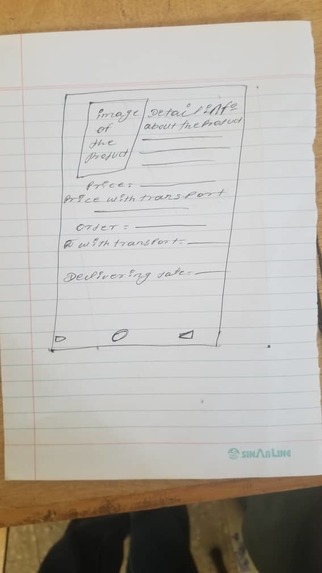 image
of
the
Product
Detail info
about the Product
Price =
Price with transPort
Order =
with transport =
Delivering date =
SINARLINE